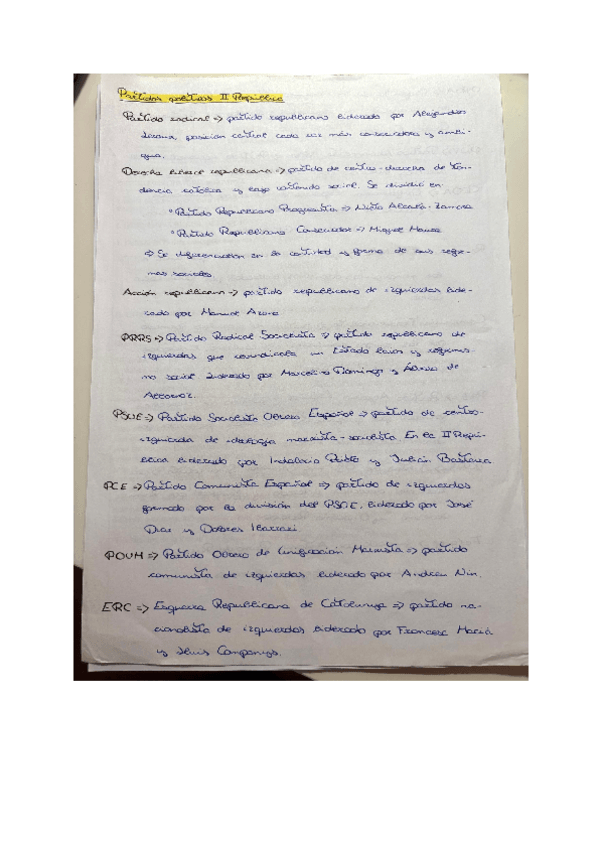 Partidos políticos II República
Partido radical => partido republicano liderado por Alejandro
Lerroux, posición central cada vez más conservadora y ambi-
gua.
Derecha liberal republicana => partido de centro-derecha de ten-
dencia católica y bajo contenido social. Se dividió en:
"Partido Republicano Progresista => Niceto Alcalá-Zamora
"Partido Republicano Conservador => Miguel Maura
=> Se diferenciaban en la cantidad y forma de sus refor-
mas sociales.
Acción republicana => partido republicano de izquierdas lide-
rado por Manuel Azaña
PRRS => Partido Radical Socialista => partido republicano de
izquierdas que reivindicaba un Estado laico y reformis-
mo social liderado por Marcelino Domingo y Álvaro de
Albornoz.
PSOE => Partido Socialista Obrero Español => partido de centro-
izquierda de ideología marxista-socialista. En la II Repú-
blica liderado por Indalecio Prieto y Julián Besteiro
PCE => Partido Comunista Español => partido de izquierdas
formado por la división del PSOE, liderado por José
Díaz y Dolores Ibarruri.
POUM => Partido Obrero de Unificación Marxista => partido
comunista de izquierdas liderado por Andreu Nin.
ERC => Esquerra Republicana de Catalunya => partido na-
cionalista de izquierdas liderado por Francesc Macià
y Lluís Companys.